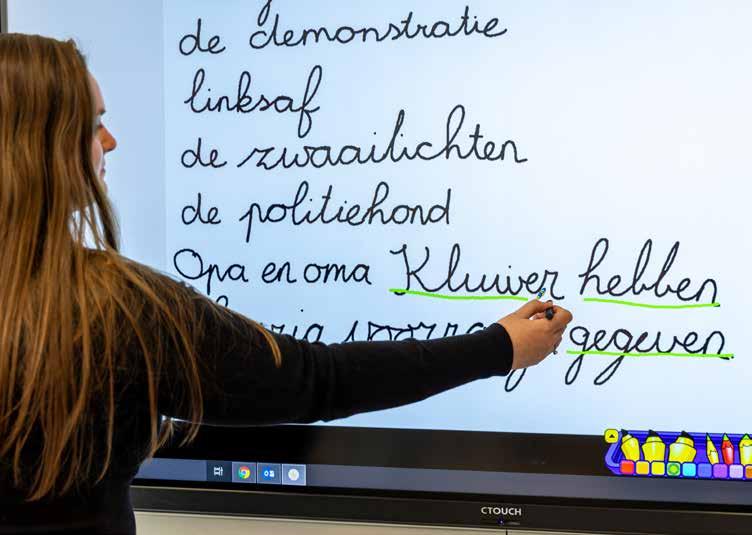 de demonstratie
linksaf
de zwaailichten
de politiehond
Opa en oma Kluiver hebben
gegeven
CTOUCH